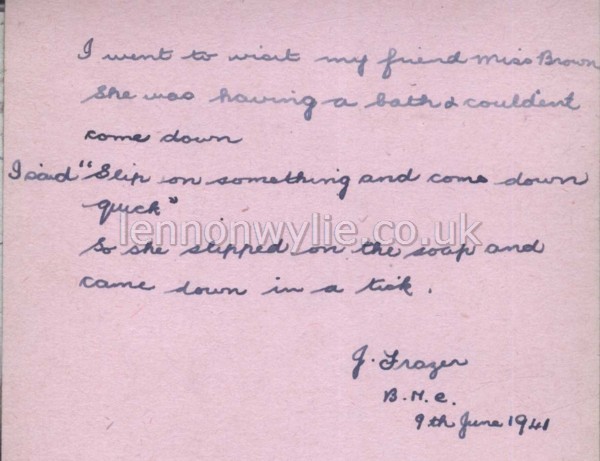 I went to visit my friend Miss Brown
She was having a bath & couldent
come down
I said "Slip on something and come down
quick"
lennonwylie.co.uk
So she slipped on the soap and
came down in a tick.
J. Frazer
B.H.C.
9th June 1941